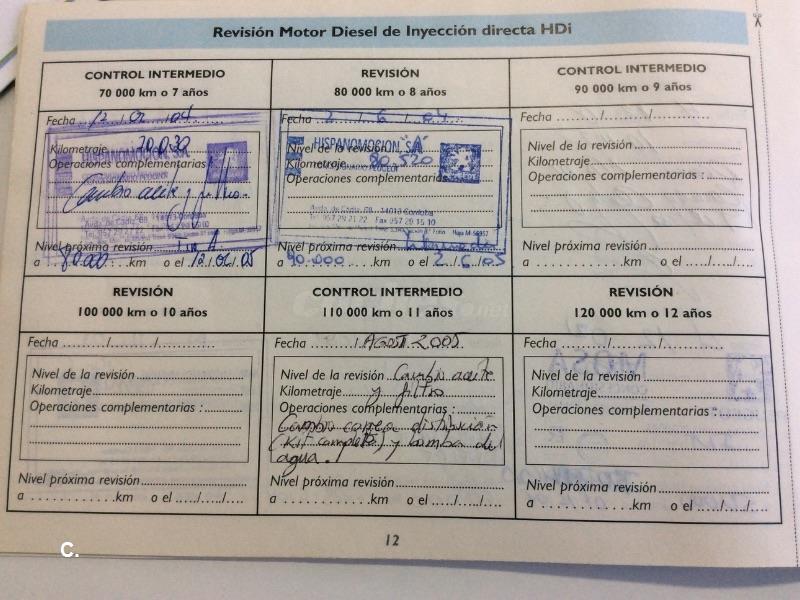 Revisión Motor Diesel de Inyección directa HDi
CONTROL INTERMEDIO
70 000 km o 7 años
Fecha 12/02/04
Kilometraje 70.030
Operaciones complementarias:
HISPANOMOCION, S.A.
Cambio aceite y filtro.
Avda. de Cádiz, 68
Nivel próxima revisión
a 80.000 km o el 12/02/05
REVISIÓN
80 000 km o 8 años
Fecha 2/6/04
HISPANOMOCION, S.A.
Nivel de la revisión "A"
Kilometraje 80.520
Operaciones complementarias
Avda. de Cádiz, 68 14013 Córdoba
Tel. 957 29 21 22 Fax 957 29 15 10
Nivel próxima revisión
a 90.000 km o el 2/6/05
CONTROL INTERMEDIO
90 000 km o 9 años
Fecha ......../......../........
Nivel de la revisión
Kilometraje
Operaciones complementarias :
Nivel próxima revisión
a ............km o el ..../..../....
REVISIÓN
100 000 km o 10 años
Fecha ......../......../........
Nivel de la revisión
Kilometraje
Operaciones complementarias :
Nivel próxima revisión
a ............km o el ..../..../....
CONTROL INTERMEDIO
110 000 km o 11 años
Fecha ......../AGOST 2005
Nivel de la revisión Cambio aceite
Kilometraje y filtro
Operaciones complementarias :
Cambio correa distribución
(Kit completo) y bomba del
agua.
Nivel próxima revisión
a ............km o el ..../..../....
REVISIÓN
120 000 km o 12 años
Fecha ......../......../........
Nivel de la revisión
Kilometraje
Operaciones complementarias :
Nivel próxima revisión
a ............km o el ..../..../....
12
C.